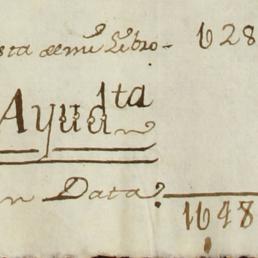 sta de mi Libro - 1628
Ayud^ta n
n Data. 1648